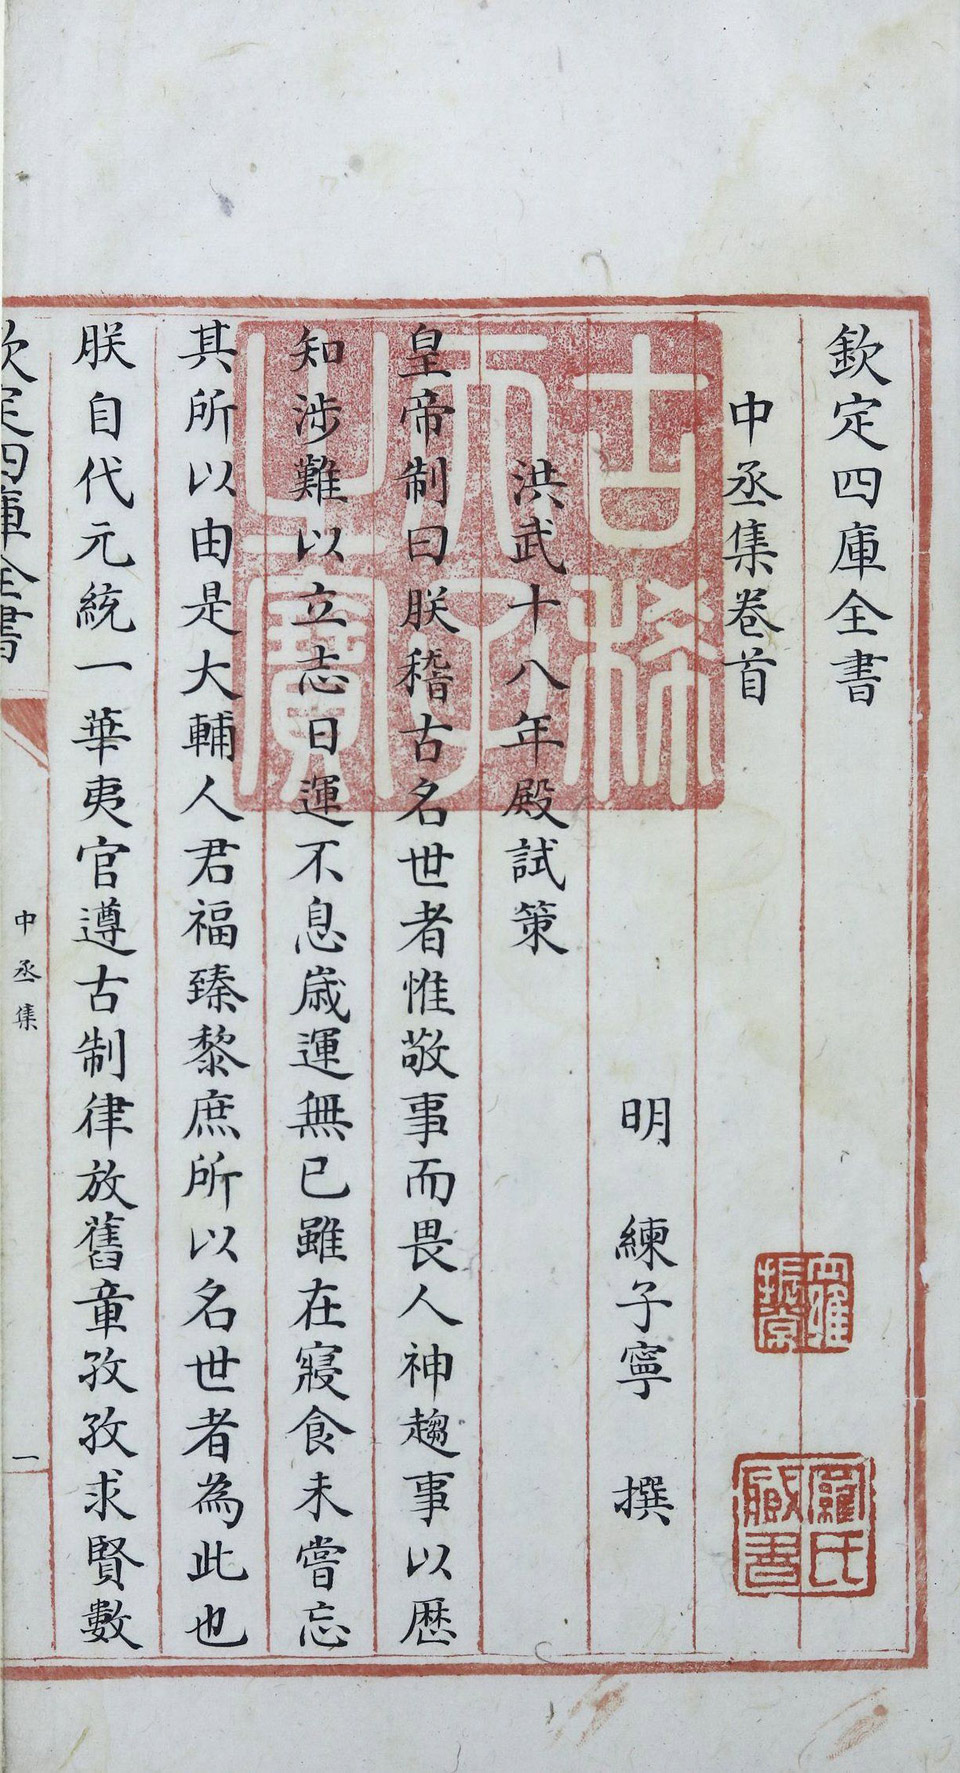 欽定四庫全書
中丞集卷首
明 練子寧 撰
洪武十八年殿試策
皇帝制曰朕稽古名世者惟敬事而畏人神趨事以歴
知涉難以立志日運不息嵗運無已雖在寢食未嘗忘
其所以由是大輔人君福臻黎庶所以名世者為此也
朕自代元統一華夷官遵古制律放舊章孜孜求賢數
欽定四庫全書
中丞集
一
古稀天子之寶
羅振常
羅氏藏書